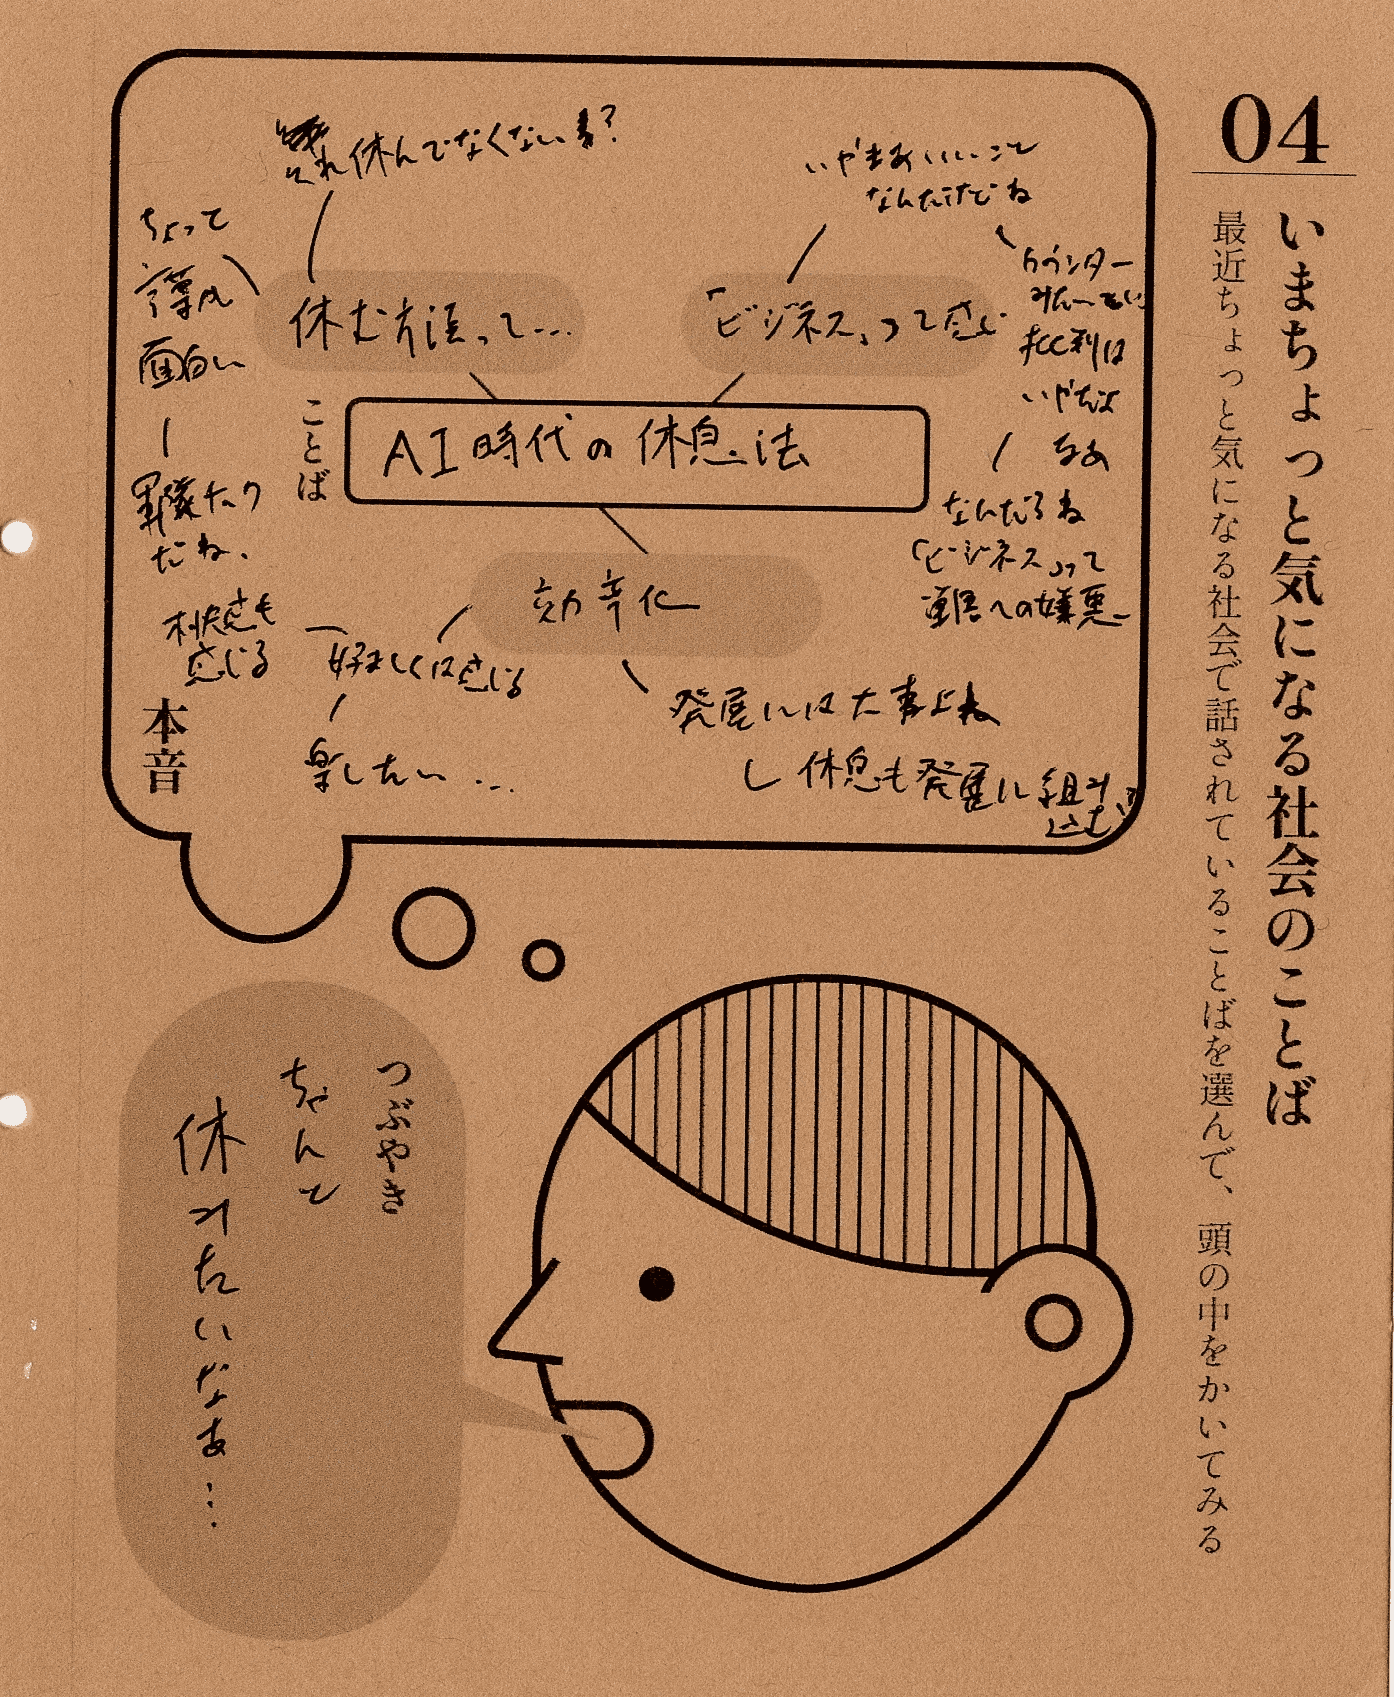 04
いまちょっと気になる社会のことば
最近ちょっと気になる社会で話されていることばを選んで、頭の中をかいてみる
それ休んでなくない?
いやまあいいこと
なんだけどね
カウンター
はいやだよ
なあ
なんだろね
「ビジネス」って
への嫌悪
「ビジネス」って感じ
休む方法って…
ちょって
言葉が
面白い
軍隊チック
だね.
ことば
AI時代の休息法
効率化
好ましくは感じる
感も
感じる
楽したい…
発展には大事よね
休息も発展に組み
込む
本音
つぶやき
ちゃんと
休みたいなぁ…